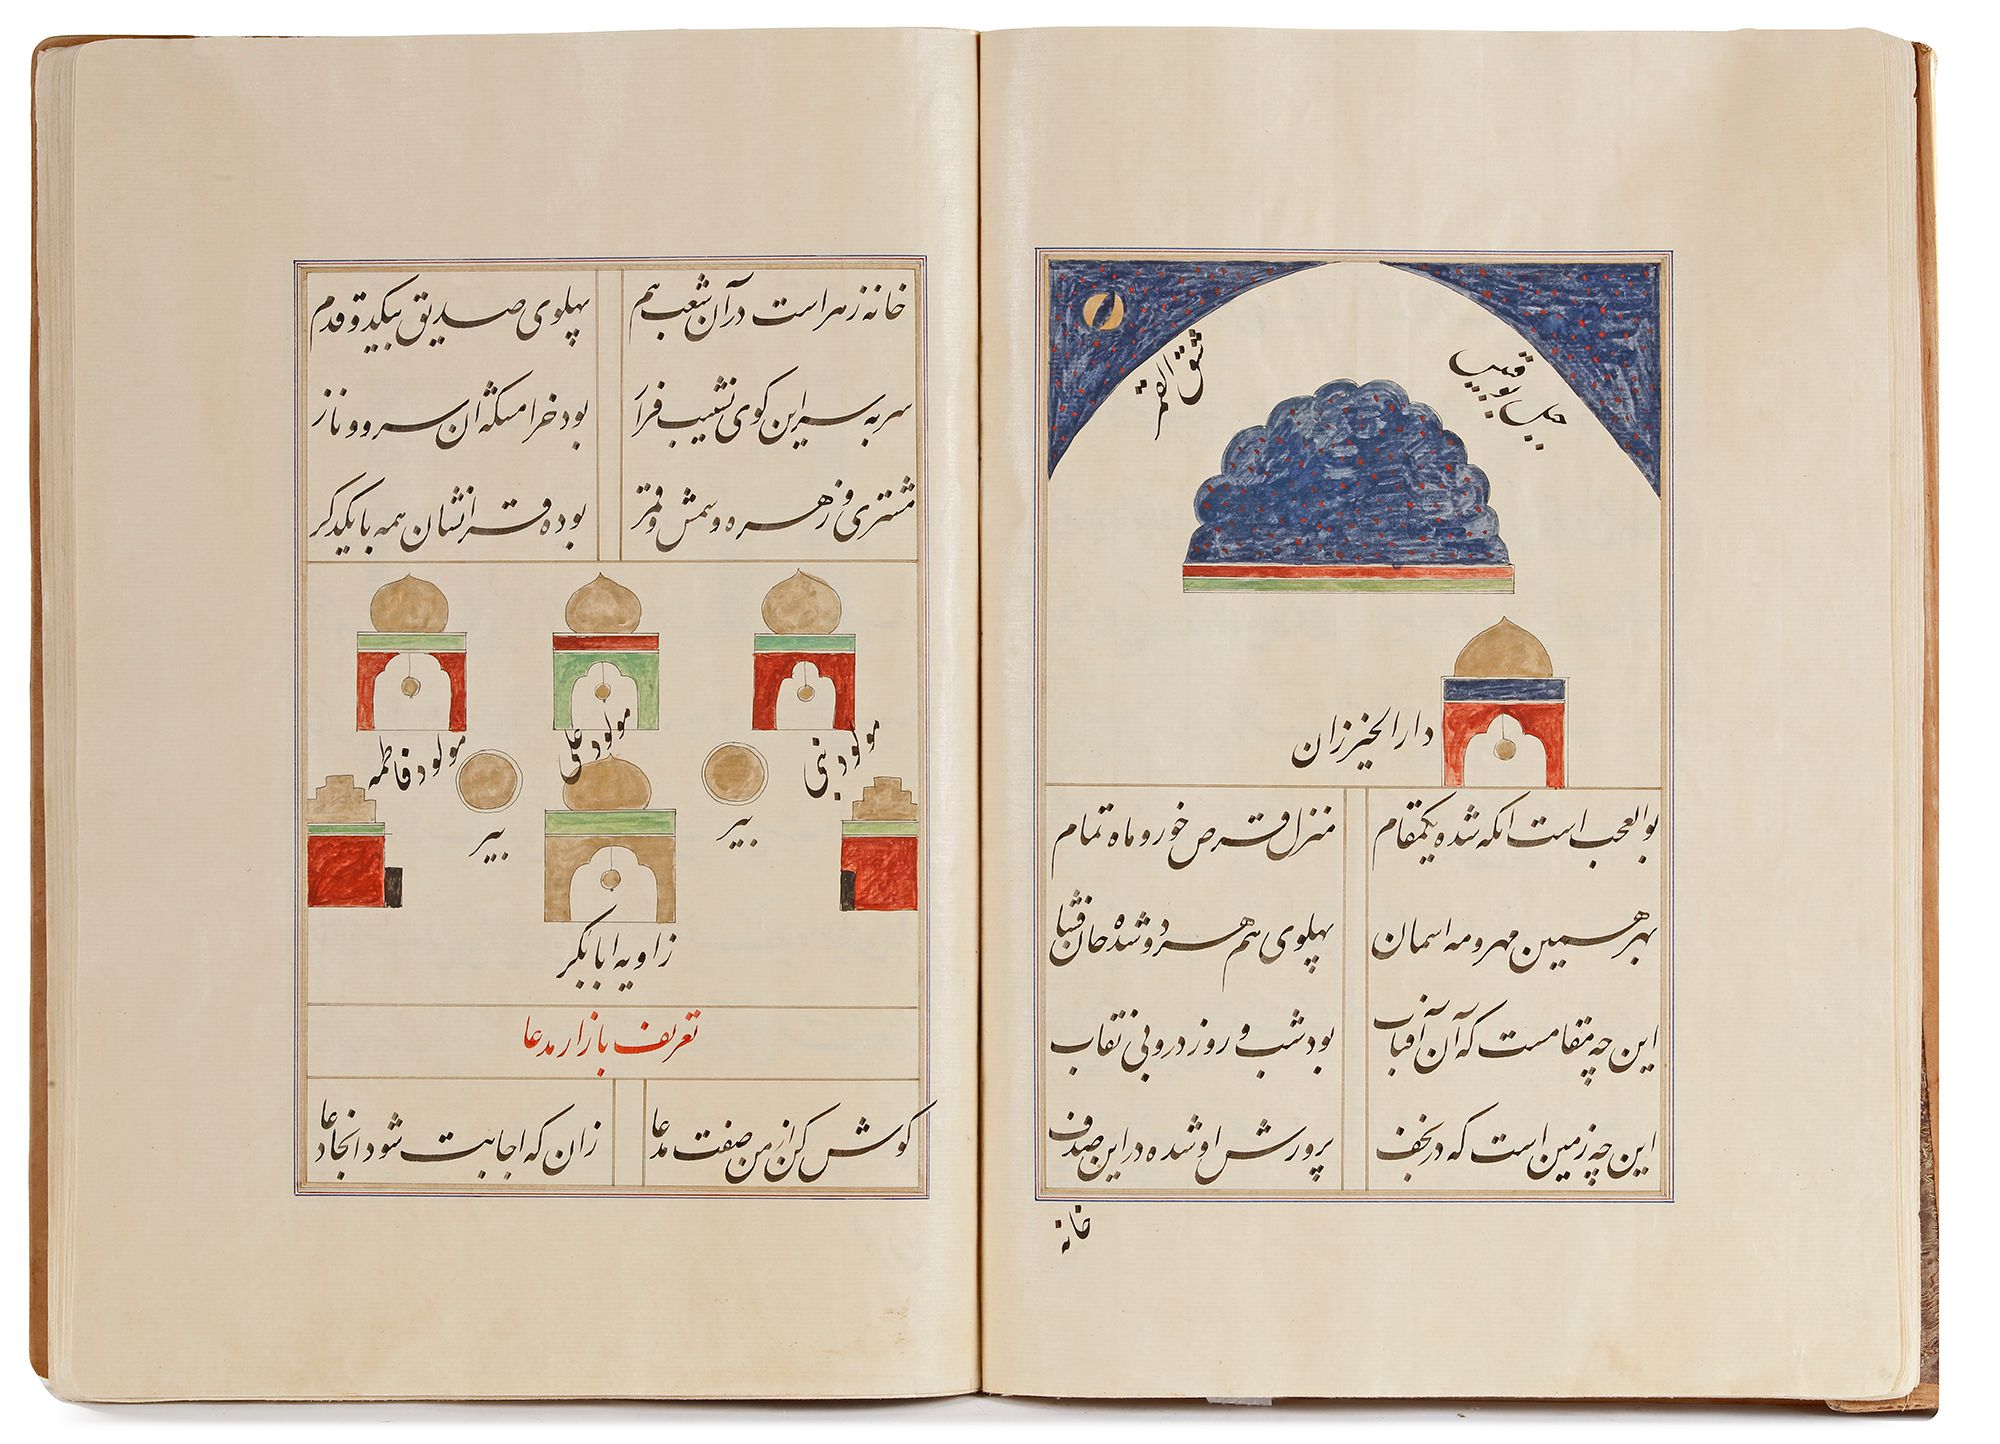 شق القمر
جبل بوقبیس
دار الخیزران
بوالعجب است انکه شده یکمقام منزل قرص خور و ماه تمام
بهر همین مهر و مه اسمان پهلوی هم هر دو شده
این چه مقامست که آن آفتاب بود شب و روز درو بی نقاب
این چه زمین است که در نجف پرورش او شده در این صدف
خانه
خانه زهراست در آن شعب هم پهلوی صدیق بیکدو قدم
سر به سر این کوی نشیب فراز بود خرامشکه آن سرو و ناز
مشتری و زهره و شمس و قمر بوده قرانشان همه با یکدگر
مولود نبی
مولود علی
مولود فاطمه
بیر
بیر
زاویه ابابکر
تعریف بازار مدعا
کوش کن از من صفت مدعا زان که اجابت شود انجا دعا